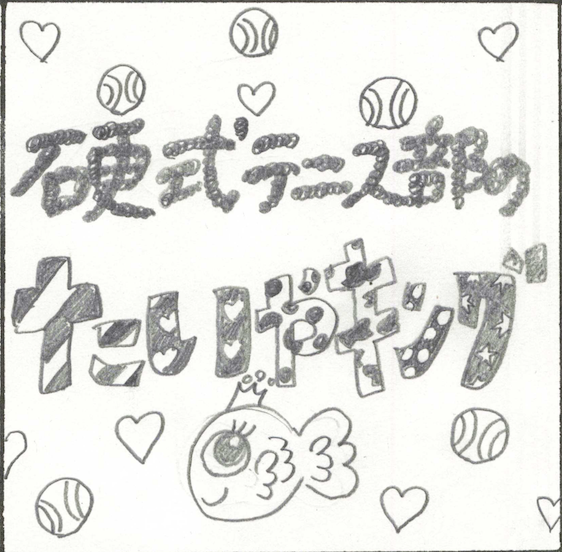 硬式テニス部の
たいやキング